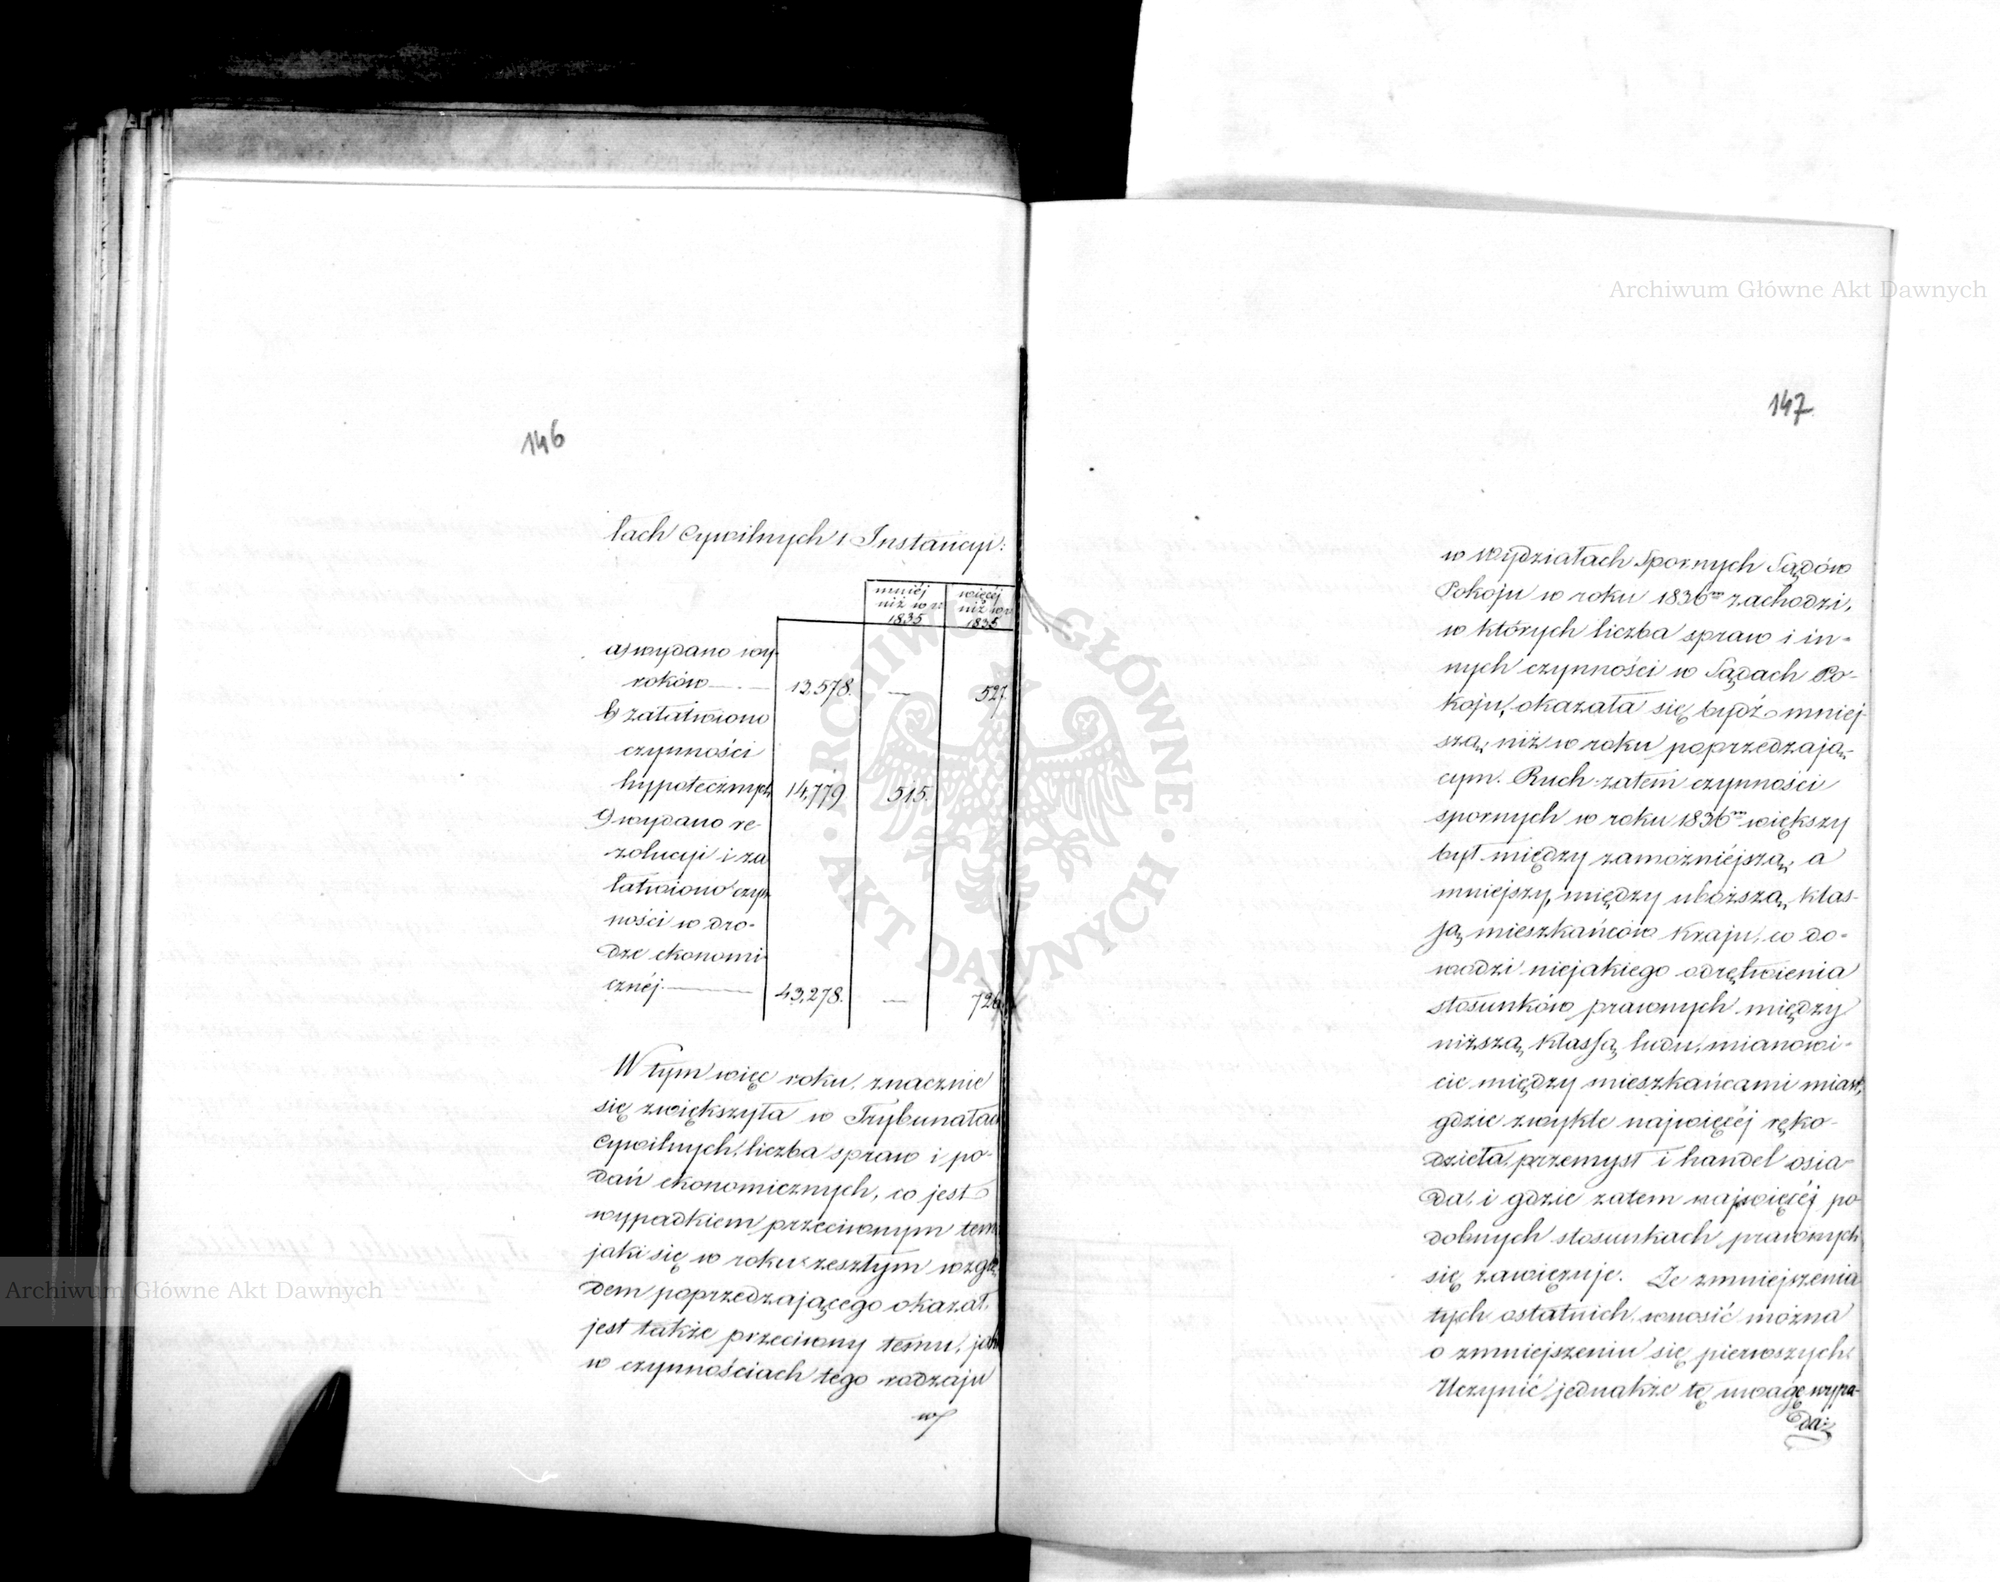 146
łach Cywilnych 1 Instancyi:
mniéj więcéj
niż w r. niż w r.
1835 1835
a) wydano wy-
roków 13,578. — 527.
b) załatwiono
czynności
hypotecznych 14,779 515.
c) wydano re-
zolucyi i za
łatwiono czyn
ności w dro-
dze ekonomi
cznéj 43,278. — 726
W tym więc roku, znacznie
się zwiększyła w Trybunałach
Cywilnych, liczba spraw i po-
dań ekonomicznych, co jest
wypadkiem przeciwnym temu
jaki się w roku zeszłym wzglę
dem poprzedzającego okazał,
jest także przeciwny temu, jaki
w czynnościach tego rodzaju
w
147
w Wydziałach Spornych Sądów
Pokoju w roku 1836m zachodzi,
w których liczba spraw i in-
nych czynności w Sądach Po-
koju, okazała się bydź mniej-
szą, niż w roku poprzedzają-
cym. Ruch zatem czynności
spornych w roku 1836m większy
był między zamożniejszą, a
mniejszy, między uboższą klas-
są mieszkańców Kraju, co do-
wodzi niejakiego odrętwienia
stosunków prawnych między
niższą klassą ludu, mianowi-
cie między mieszkańcami miast,
gdzie zwykle najwięcéj ręko-
dzieła, przemysł i handel osia-
da, i gdzie zatem najwięcéj po
dobnych stosunkach prawnych
się zawięzuje. Ze zmniejszenia
tych ostatnich, wnosić można
o zmniejszeniu się pierwszych.
Uczynić jednakże tę uwagę wypa-
da:
Archiwum Główne Akt Dawnych
Archiwum Główne Akt Dawnych
ARCHIWUM GŁÓWNE AKT DAWNYCH